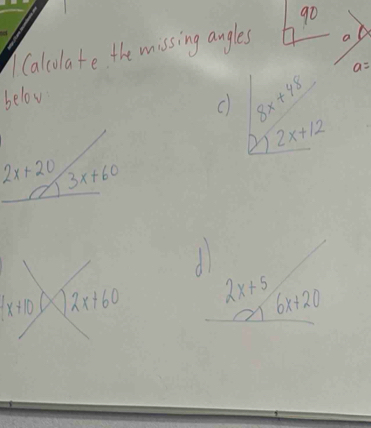 90
a
a=
1 Calculate the missing angles
below
c)
8x+48
2x+12
2x+20
3x+60
d)
x+10
2x+60
2x+5
6x+20